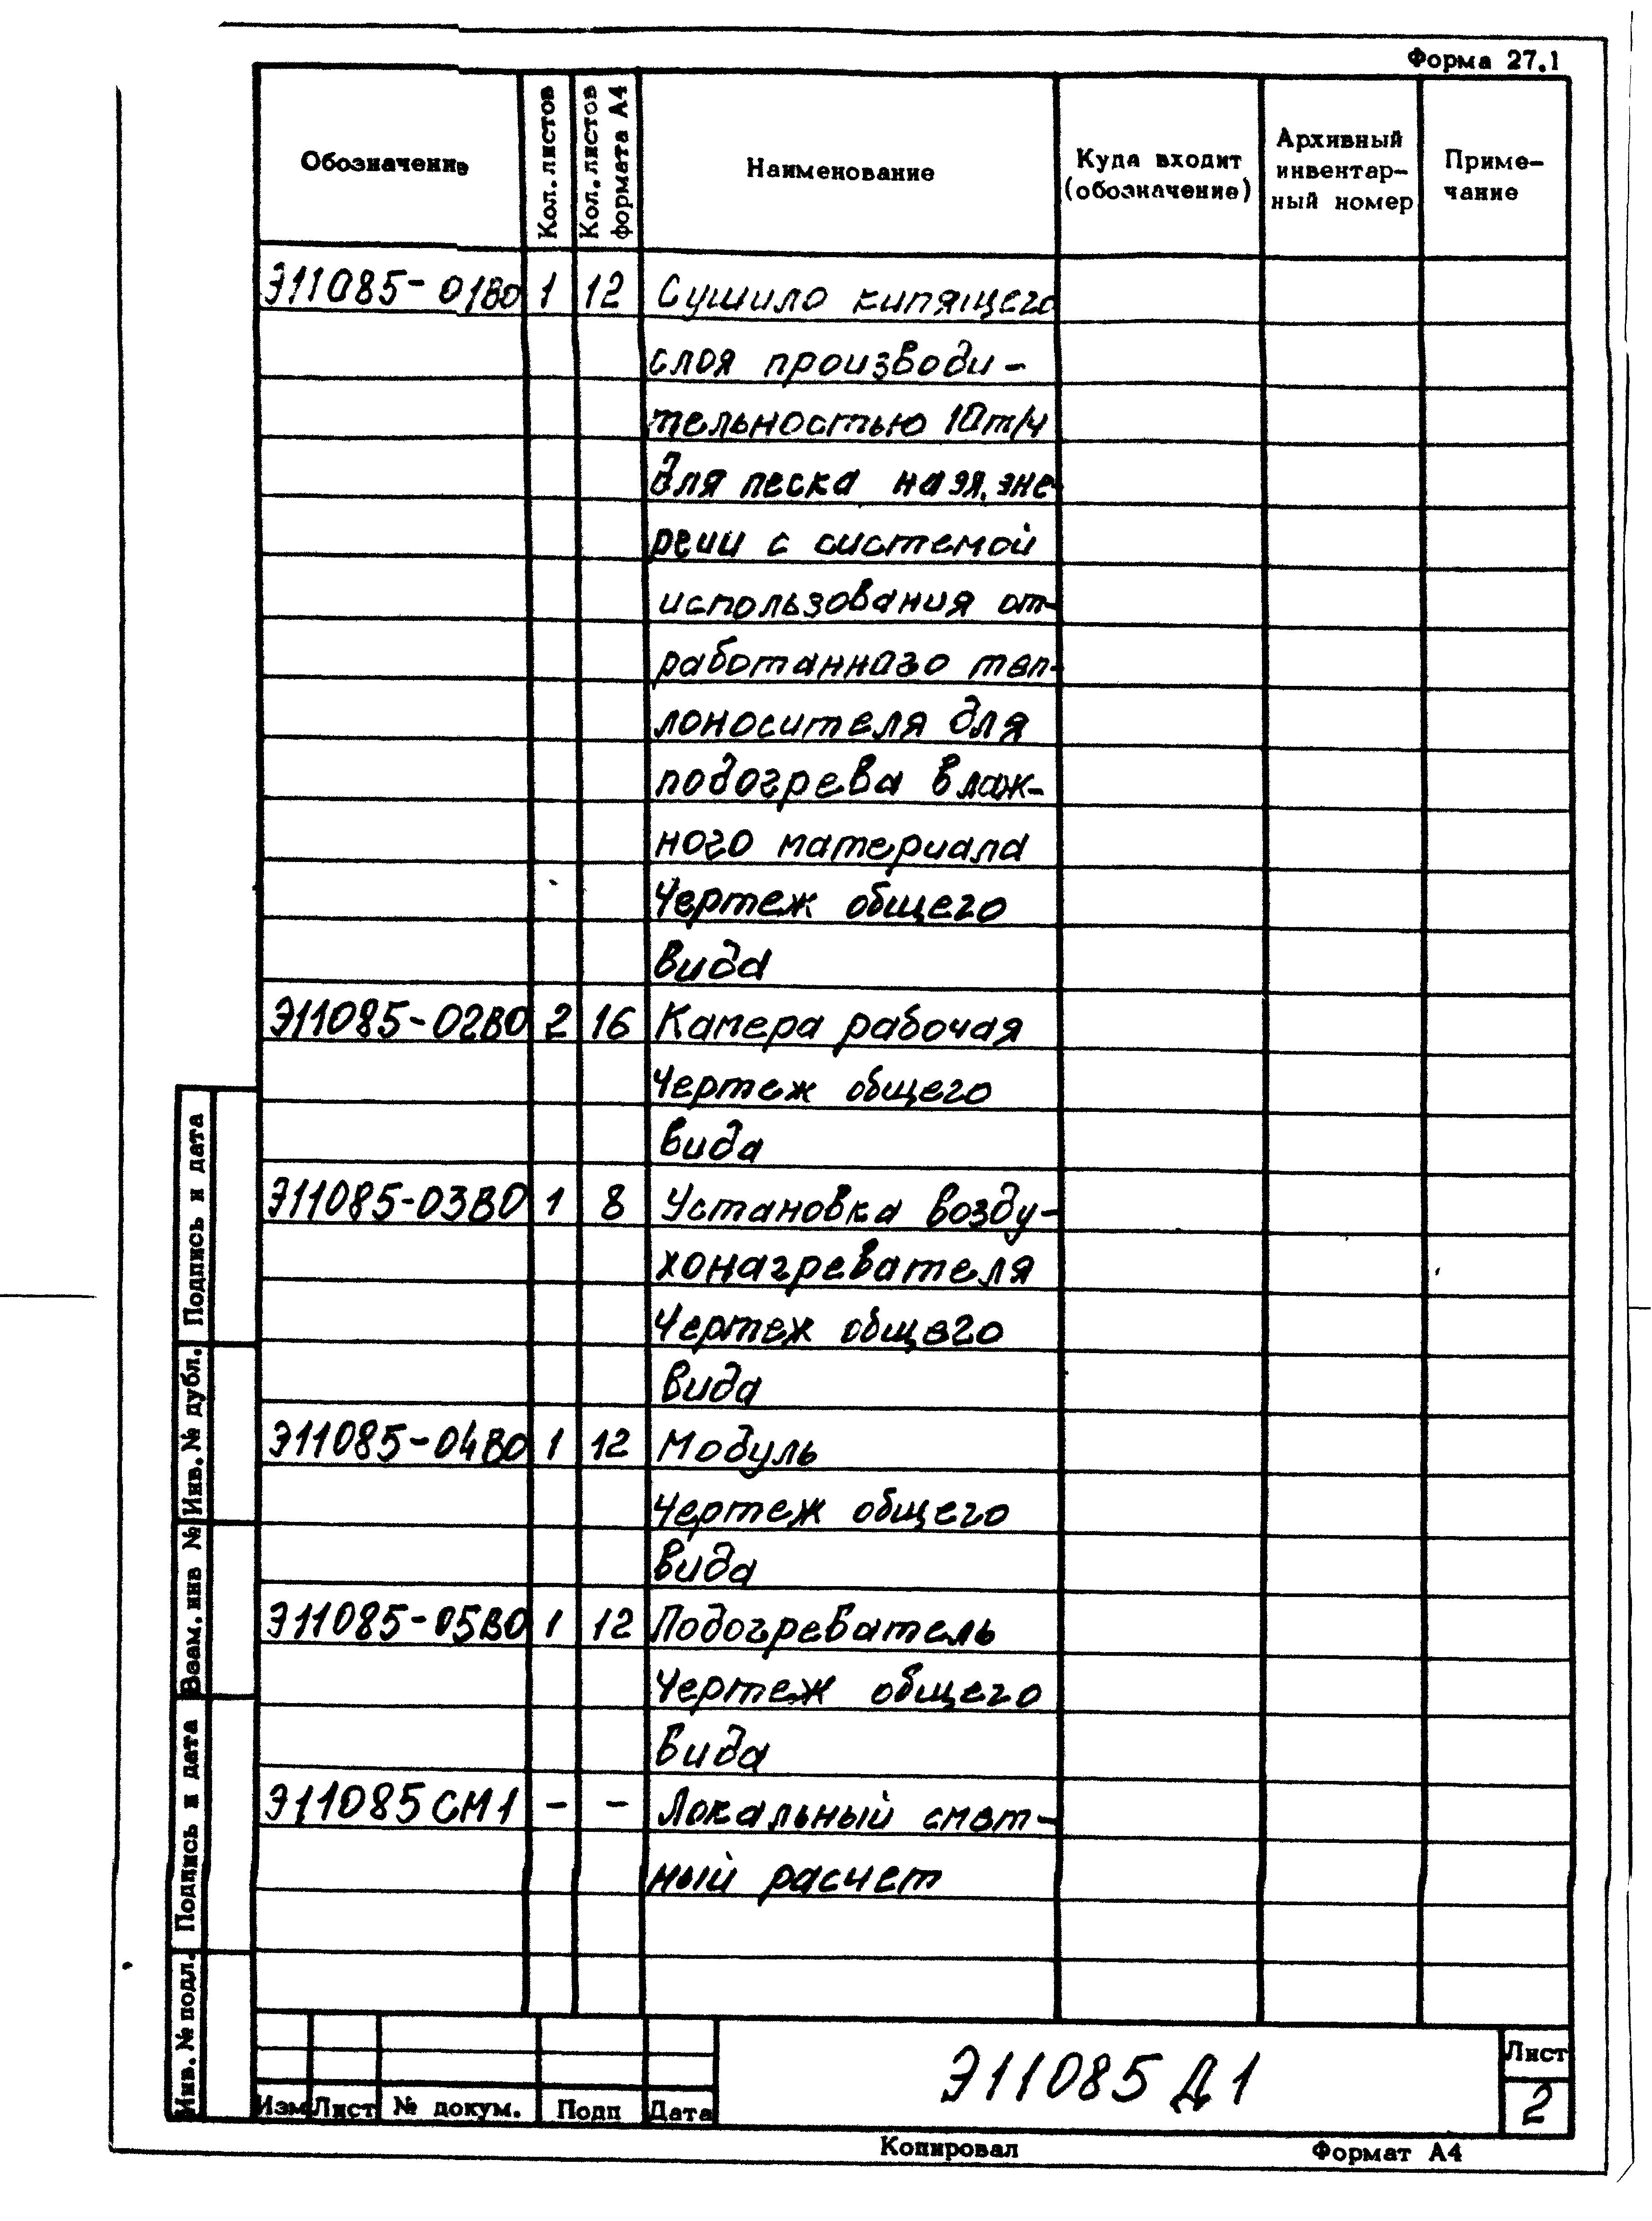 Форма 27.1
Обозначение
Кол. листов
Кол. листов формата А4
Наименование
Куда входит (обозначение)
Архивный инвентар- ный номер
Приме- чание
Э11085-01ВО 1 12 Сушило кипящего
слоя производи-
тельностью 10т/ч
для песка на эл. эне-
ргии с системой
использования от-
работанного теп-
лоносителя для
подогрева влаж-
ного материала
Чертеж общего
вида
Э11085-02ВО 2 16 Камера рабочая
Чертеж общего
вида
Э11085-03ВО 1 8 Установка возду-
хонагревателя
Чертеж общего
вида
Э11085-04ВО 1 12 Модуль
Чертеж общего
вида
Э11085-05ВО 1 12 Подогреватель
Чертеж общего
вида
Э11085СМ1 - - Локальный смет-
ный расчет
Подпись и дата
Инв. № дубл.
Взам. инв №
Подпись и дата
Инв. № подл.
Изм Лист № докум. Подп Дата
Э11085 Д1
Лист
2
Копировал
Формат А4